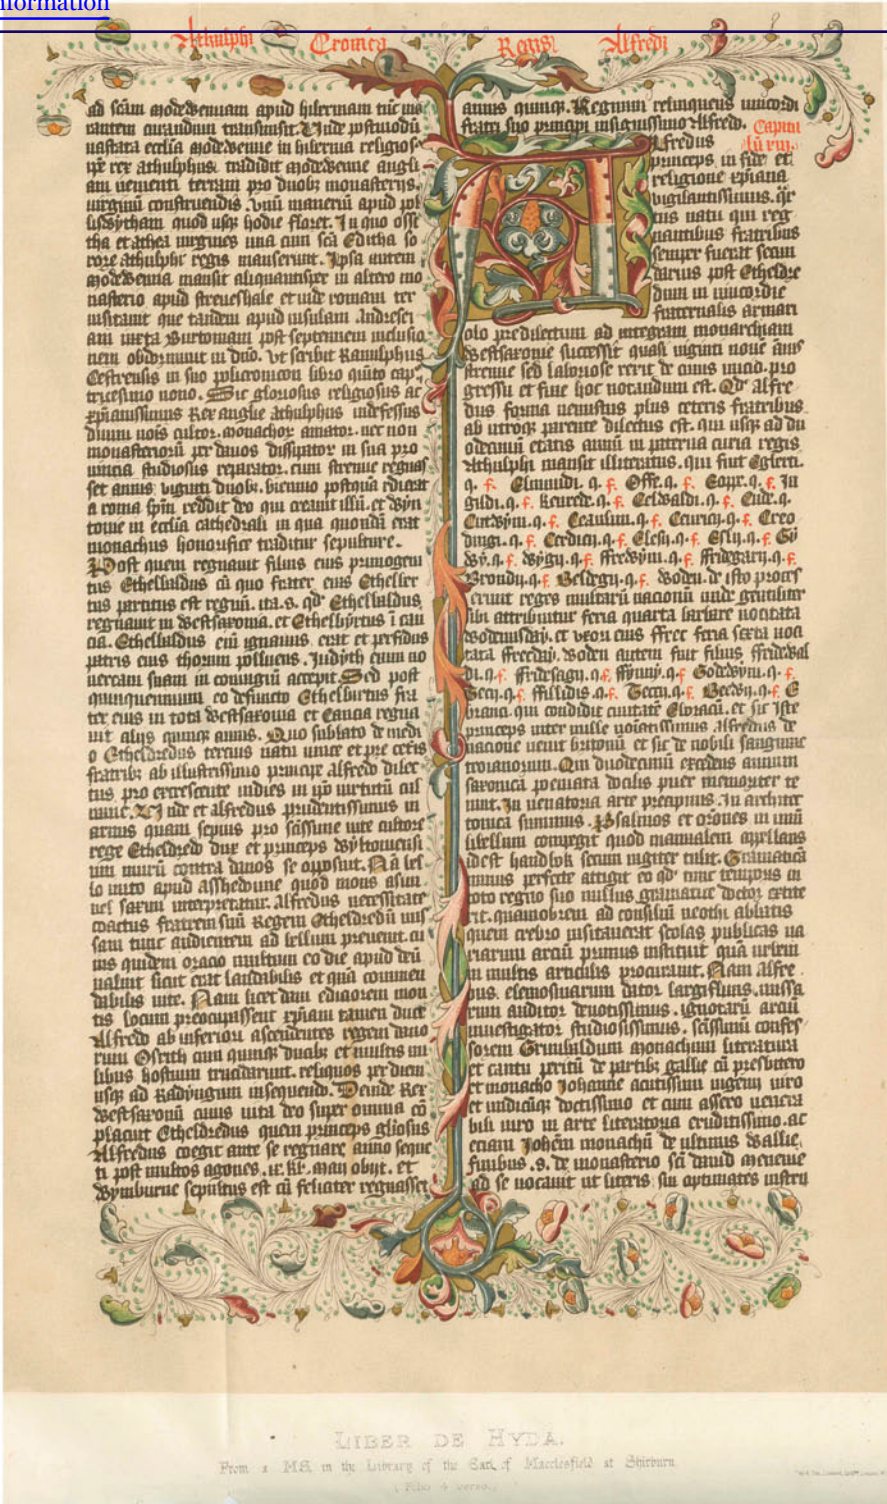 nformation
Athulphi Cronica Regis Alfredi
ad scām Modewennam apud hiberniam tūc
rantem curandum transmisit. Unde postmodū
uastata ecclīa Modewenne in hibernia religios
rex athulphus tradidit Modewenne angli
am uenienti terram pro duobȝ monasteriis
uirginū construendis. Unū manerū apud pol
liswytham quod usqȝ hodie floret. In quo
tha et athea uirgines una cum scā Editha so
rore athulphi regis manserunt. Ipsa autem
Modewenna mansit aliquantisper in altero mo
nasterio apud streueshale et inde romam ter
uisitauit que tandem apud insulam Andresei
am iuxta Burtoniam post septennem inclusio
nem obdormiuit in dno. ut scribit Ranulphus
Cestrensis in suo policronicon libro quīto cap
tricesimo nono. Sic gloriosus religiosus ac
xpianissimus Rex anglie athulphus indefessus
diuini cultor. monachoꝝ amator. nec non
monasteriorū per danos dissipator in sua pro
uincia studiosus reparator. cum strenue regnas
set annis uiginti duobȝ. biennio postquā
a roma spm reddit deo qui creauit illū. et wyn
tonie in ecclīa cathedrali in qua quondā erat
monachus honorifice traditur sepulture.
Post quem regnauit filius eius primogeni
tus Ethelbaldus cū quo frater eius Ethelber
tus partitus est regnū. ita. s. qd Ethelbaldus
regnauit in westsaxonia. et Ethelbyrtus ī can
cia. Ethelbaldus eni ignauus erat et perfidus
patris eius thorum polluens. Judyth enim no
uercam suam in coniugiū accepit. Sed post
quinquennium eo defuncto Ethelbirtus fra
ter eius in tota westsaxonia et Cancia regna
uit aliis quinqȝ annis. Quo sublato de medi
o Etheldredus tercius natu unice et pre
fratribȝ ab illustrissimo principe alfredo dilec
tus pro excrescente indies in ipo uirtutū
mine. Inde et alfredus prudentissimus in
armis quam sepius pro scissime uite cultore
rege Etheldredo dux et princeps
um murū contra danos se opposuit. Nā bel
lo inito apud asshedoune quod mons asini
uel saxini interpretatur. Alfredus necessitate
coactus fratrem suū Regem Etheldredū mis
sam tunc audientem ad bellum preuenit. cu
ius quidem oracio multum eo die apud deū
ualuit sicut erat laudabilis et quā commen
dabilis uite. Nam licet dani ediciorem mon
tis locum preoccupassent xpiani tamen duce
Alfredo ab inferiori ascendentes regem dano
rum Osrith cum quinqȝ ducibȝ et multis mi
libus hostium trucidarunt. reliquos per diem
usqȝ ad Radyngum insequendo. Deinde Rex
westsaxonū cuius uita deo super omnia cō
placuit Etheldredus quem princeps gliosus
Alfredus coegit ante se regnare anno seque
ti post multos agones. ix. kl. maii obijt. et
wymburne sepultus est cū feliciter regnasset
annis quinqȝ. Regnum relinquens unicordi
fratri suo principi insignissimo Alfredo.
Capitu
lū
Alfredus
princeps in fide et
religione xpiana
uigilantissimus.
tus natu qui reg
nantibus fratribus
semper fuerat secun
darius post Etheldre
dum in unicordie
fraternalis armari
olo predilectum ad integram monarchiam
westsaxonie successit quasi uiginti noue ānis
strenue sed laboriose rexit de cuius inicio. pro
gressu et fine hoc notandum est. Qd alfre
dus forma uenustus plus ceteris fratribus
ab utroqȝ parente dilectus est. qui usqȝ ad du
odecimū etatis annū in paterna curia regis
Athulphi mansit illiteratus. qui fuit Egberti.
q. f. Elmundi. q. f. Offe. q. f. Eoppe. q. f. In
gildi. q. f. kenrede. q. f. Celwaldi. q. f. Cude. q.
Cutwyni. q. f. Ceaulini. q. f. Cenrici. q. f. Creo
dingi. q. f. Cerdici. q. f. Elesii. q. f. Eslii. q. f. Gy
wy. q. f. wygii. q. f. ffrewyni. q. f. ffridegarii. q. f.
Brondii. q. f. Beldegii. q. f. woden. de isto proces
serunt reges multarū nacionū unde gentiliter
sibi attribuitur feria quarta barbare nocitata
wodenisday. et ueori eius ffree feria sexta uoci
tata ffreeday. woden autem fuit filius ffridewal
di. q. f. ffridesagii. q. f. ffynni. q. f. Godewyni. q. f.
Gecii. q. f. ffillidis. q. f. Tecti. q. f. Beewii. q. f. E
branci. qui condidit ciuitatē Eboracū. et sic iste
princeps inter mille Alfredus de
nacione uenit britonū et sic de nobili sanguine
troianorum. Qui duodecimū excedens annum
saxonica poemata docilis puer memoriter te
nuit. In uenatoria arte precipuus. In architec
tonica summus. Psalmos et orōnes in unū
libellum compegit quod manualem appellans
idest handbok secum iugiter tulit. Gramaticā
minus perfecte attigit eo qd tunc temporis in
toto regno suo nullus gramatice doctor extite
rit. quamobrem ad consiliū neothi abbatis
quem crebro uisitauerat scolas publicas ua
riarum arciū primus instituit quā urbem
in multis articulis procurauit. Nam alfre
dus elemosinarum dator largifluus. missa
rum auditor deuotissimus. ignotarū arciū
inuestigator studiosissimus. scissimū confes
sorem Grimbaldum monachum literatura
et cantu peritū de partibȝ gallie cū presbitero
et monacho Johanne acutissimi ingenij uiro
et undicūqȝ doctissimo et cum assero uenera
bili uiro in arte literatoria eruditissimo. ac
eciam Johēm monachū de ultimis wallie
finibus. s. de monasterio sci dauid meneuie
ad se uocauit ut literis sui optimates instru
LIBER DE HYDA.
From a MS. in the Library of the Earl of Macclesfield at Shirburn
(Folio 4 verso.)